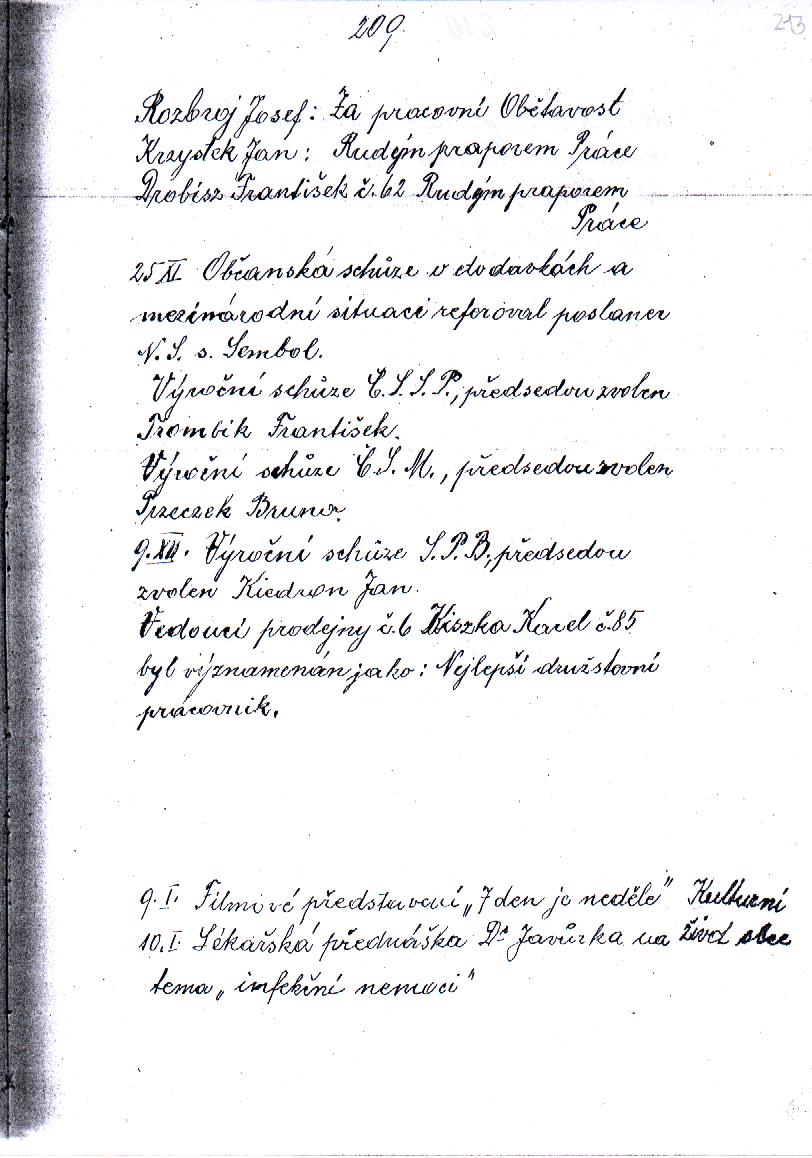 209.
213
Rozbroj Josef: Za pracovní Obětavost
Krzystek Jan: Rudým praporem Práce
Drobisz František č. 62 Rudým praporem
Práce
25 XI Občanská schůze o dodavkách a
mezinárodní situaci referoval poslanec
N. S. s. Sembol.
Výroční schůze Č.S.S.P., předsedou zvolen
Trombik František.
Výroční schůze Č.S.M., předsedou zvolen
Przeczek Bruno.
9. XII. Výroční schůze S.P.B., předsedou
zvolen Kiedron Jan.
Vedoucí prodejny č. 6 Kiszka Karel č. 85
byl významenán jako: Nejlepší družstevní
pracovnik.
9. I. Filmové představení „7 den je neděle" Kulturní
10. I. Lékařská přednáška Dr Javůrka na život obce
tema „infekční nemoci"